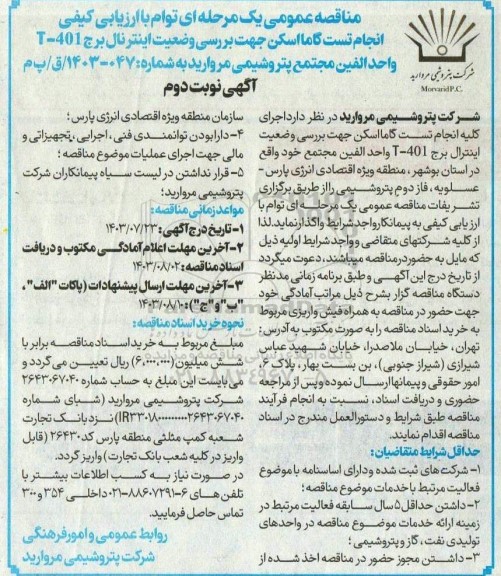 مناقصه عمومی یک مرحله ای توام با ارزیابی کیفی
انجام تست گاما اسکن جهت بررسی وضعیت اینترنال برج T-401
واحد الفین مجتمع پتروشیمی مروارید به شماره: ۰۴۷-۱۴۰۳/ق/پ م
آگهی نوبت دوم
شرکت پتروشیمی مروارید
Morvarid P.C.
شرکت پتروشیمی مروارید در نظر دارد اجرای
کلیه انجام تست گاما اسکن جهت بررسی وضعیت
اینترنال برج T-401 واحد الفین مجتمع خود واقع
در استان بوشهر، منطقه ویژه اقتصادی انرژی پارس-
عسلویه، فاز دوم پتروشیمی را از طریق برگزاری
تشریفات مناقصه عمومی یک مرحله ای توام با
ارزیابی کیفی به پیمانکار واجد شرایط واگذار نماید. لذا
از کلیه شرکتهای متقاضی و واجد شرایط اولیه ذیل
که مایل به حضور در مناقصه میباشند، دعوت میگردد
از تاریخ درج این آگهی و طبق برنامه زمانی مدنظر
دستگاه مناقصه گزار بشرح ذیل مراتب آمادگی خود
جهت حضور در مناقصه به همراه فیش واریزی مربوط
به خرید اسناد مناقصه را به صورت مکتوب به آدرس:
تهران، خیابان ملاصدرا، خیابان شهید عباس
شیرازی (شیراز جنوبی)، بن بست بهار، پلاک ۲،
امور حقوقی و پیمانها ارسال نموده و پس از مراجعه
حضوری و دریافت اسناد، نسبت به انجام فرآیند
مناقصه طبق شرایط و دستورالعمل مندرج در اسناد
مناقصه اقدام نمایند.
حداقل شرایط متقاضیان:
۱- شرکت های ثبت شده و دارای اساسنامه با موضوع
فعالیت مرتبط با خدمات موضوع مناقصه؛
۲- داشتن حداقل ۵ سال سابقه فعالیت مرتبط در
زمینه ارائه خدمات موضوع مناقصه در واحدهای
تولیدی نفت، گاز و پتروشیمی؛
۳- داشتن مجوز حضور در مناقصه اخذ شده از
سازمان منطقه ویژه اقتصادی انرژی پارس؛
۴- دارا بودن توانمندی فنی، اجرایی، تجهیزاتی و
مالی جهت اجرای عملیات موضوع مناقصه؛
۵- قرار نداشتن در لیست سیاه پیمانکاران شرکت
پتروشیمی مروارید؛
مواعد زمانی مناقصه:
۱- تاریخ درج آگهی: ۱۴۰۳/۰۷/۲۳
۲- آخرین مهلت اعلام آمادگی مکتوب و دریافت
اسناد مناقصه: ۱۴۰۳/۰۸/۰۲
۳- آخرین مهلت ارسال پیشنهادات (پاکات "الف"،
"ب" و "ج"): ۱۴۰۳/۰۸/۱۰
نحوه خرید اسناد مناقصه:
مبلغ مربوط به خرید اسناد مناقصه برابر با
شش میلیون (۶,۰۰۰,۰۰۰) ریال تعیین می گردد و
می بایست این مبلغ به حساب شماره ۲۶۴۳۰۶۷۰۴۰
شرکت پتروشیمی مروارید (شبای شماره
نزد بانک تجارت
شعبه کمپ مثلثی منطقه پارس کد ۲۶۴۳۰ (قابل
واریز در کلیه شعب بانک تجارت) واریز گردد.
در صورت نیاز به کسب اطلاعات بیشتر با
تلفن های ۶-۰۲۱-۸۸۶۰۷۲۹۱ داخلی ۳۵۴ و ۳۰۰
تماس حاصل فرمایید.
روابط عمومی و امور فرهنگی
شرکت پتروشیمی مروارید